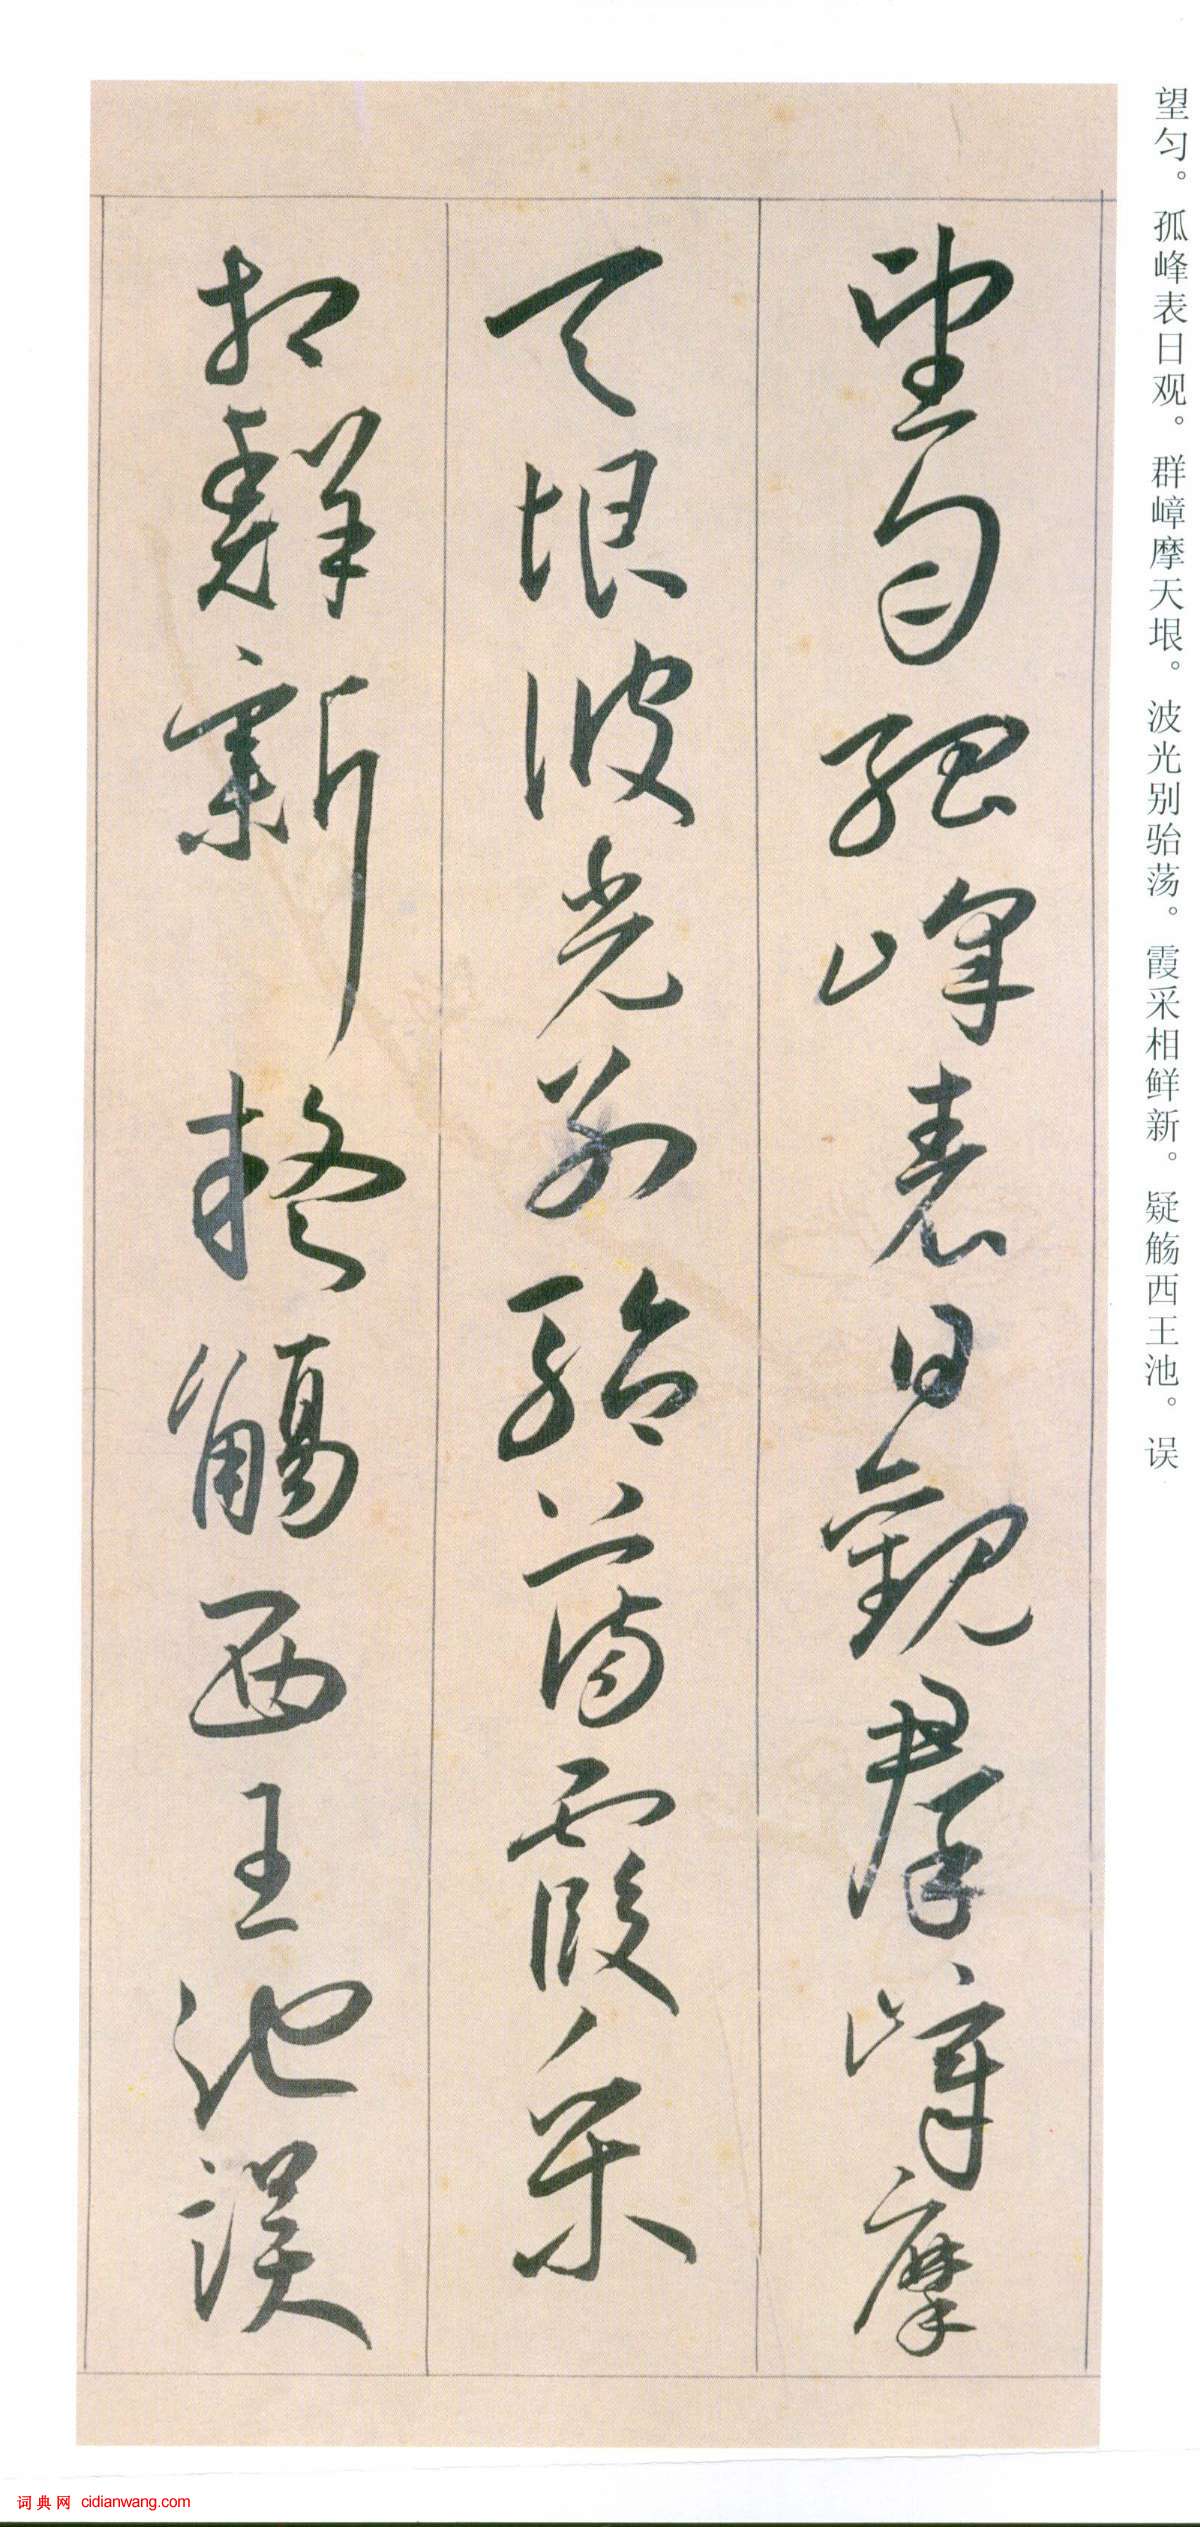 望匀。孤峰表日观。群嶂摩天垠。波光别骀荡。霞采相鲜新。疑觞西王池。误
望匀孤峰表日觀群嶂摩
天垠波光别駘蕩霞采
相鮮新疑觴西王池誤
词典网 cidianwang.com